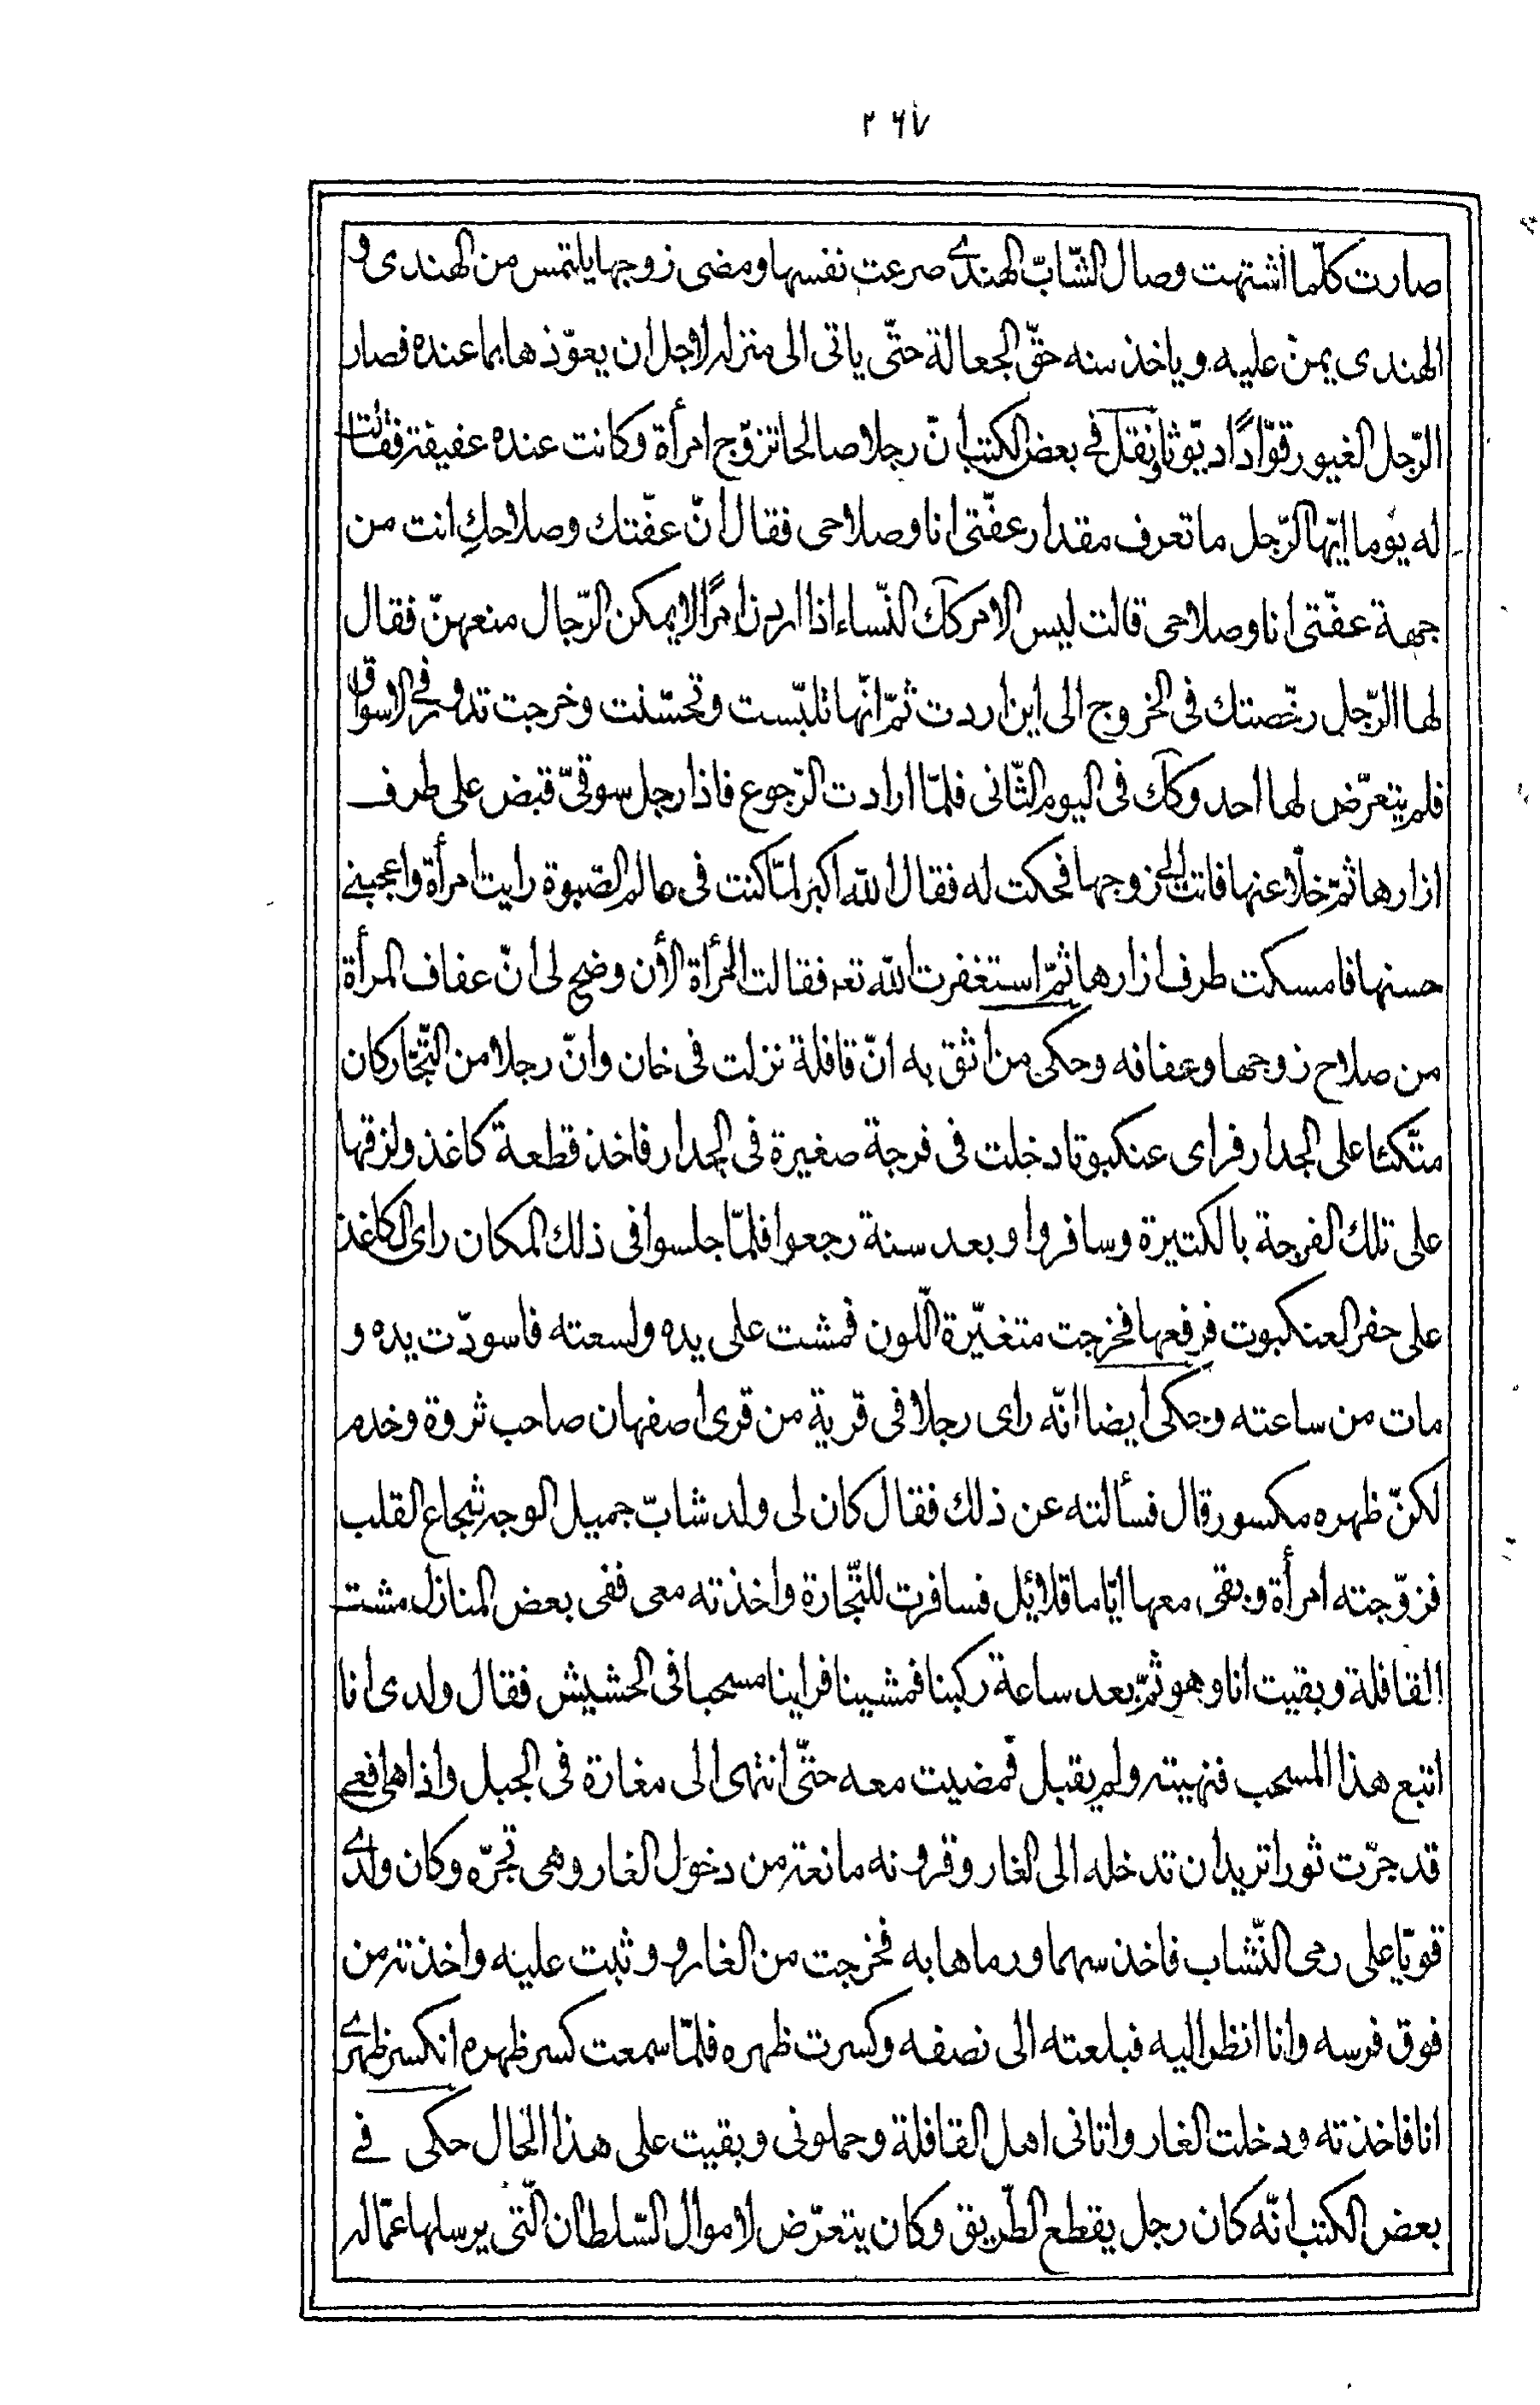 ٢٦٧
صارت كلّما اشتهت وصال الشّابّ الهندى صرعت نفسها ومضى زوجها يلتمس من الهندى و
الهندى يمنّ عليه وياخذ منه حقّ الجعالة حتّى ياتى الى منزله لاجل ان يعوّذها بما عنده فصار
الرّجل الغيور قوّادًا ديّوثا ونقل فى بعض الكتب انّ رجلا صالحا تزوّج امرأة وكانت عنده عفيفة فقالت
له يوما ايّها الرّجل ما تعرف مقدار عفّتى انا وصلاحى فقال انّ عفّتك وصلاحكِ انت من
جهة عفّتى انا وصلاحى قالت ليس الامر كك النّساء اذا اردن امرًا لا يمكن الرّجال منعهنّ فقال
لها الرّجل رخّصتك فى الخروج الى اين اردت ثمّ انّها تلبّست وتحسّنت وخرجت تدور فى الاسواق
فلم يتعرّض لها احد وكك فى اليوم الثّانى فلمّا ارادت الرّجوع فاذا رجل سوقىّ قبض على طرف
ازارها ثمّ خلّا عنها فاتت الى زوجها فحكت له فقال الله اكبر لمّا كنت فى عالم الصّبوة رايت امرأة واعجبنى
حسنها فامسكت طرف ازارها ثمّ استغفرت الله تعه فقالت المرأة الأن وضح لى انّ عفاف المرأة
من صلاح زوجها وعفافه وحكى من اثق به انّ قافلة نزلت فى خان وانّ رجلا من التّجّار كان
متّكئا على الجدار فراى عنكبوتا دخلت فى فرجة صغيرة فى الجدار فاخذ قطعة كاغذ ولزقها
على تلك الفرجة بالكتيرة وسافروا وبعد سنة رجعوا فلمّا جلسوا فى ذلك المكان راى الكاغذ
على حفر العنكبوت فرفعها فخرجت متغيّرة اللّون فمشت على يده ولسعته فاسودّت يده و
مات من ساعته وحكى ايضا انّه راى رجلا فى قرية من قرى اصفهان صاحب ثروة وخدم
لكنّ ظهره مكسور قال فسألته عن ذلك فقال كان لى ولد شابّ جميل الوجه شجاع القلب
فزوّجته امرأة وبقى معها ايّاما قلائل فسافرت للتّجارة واخذته معى ففى بعض المنازل مشت
القافلة وبقيت انا وهو ثمّ بعد ساعة ركبنا فمشينا فراينا مسحبا فى الحشيش فقال ولدى انا
اتبع هذا المسحب فنهيته ولم يقبل فمضيت معه حتّى انتهى الى مغارة فى الجبل واذا هى افعى
قد جرّت ثورا تريد ان تدخله الى الغار وقرونه مانعة من دخول الغار وهى تجرّه وكان ولدى
قويّا على رمى النّشاب فاخذ سهما ورماها به فخرجت من الغار ووثبت عليه واخذته من
فوق فرسه وانا انظر اليه فبلعته الى نصفه وكسرت ظهره فلمّا سمعت كسر ظهره انكسر ظهرى
انا فاخذته ودخلت الغار واتانى اهل القافلة وحملونى وبقيت على هذا الحال حكى فى
بعض الكتب انّه كان رجل يقطع الطّريق وكان يتعرّض لاموال السّلطان الّتى يرسلها عمّاله